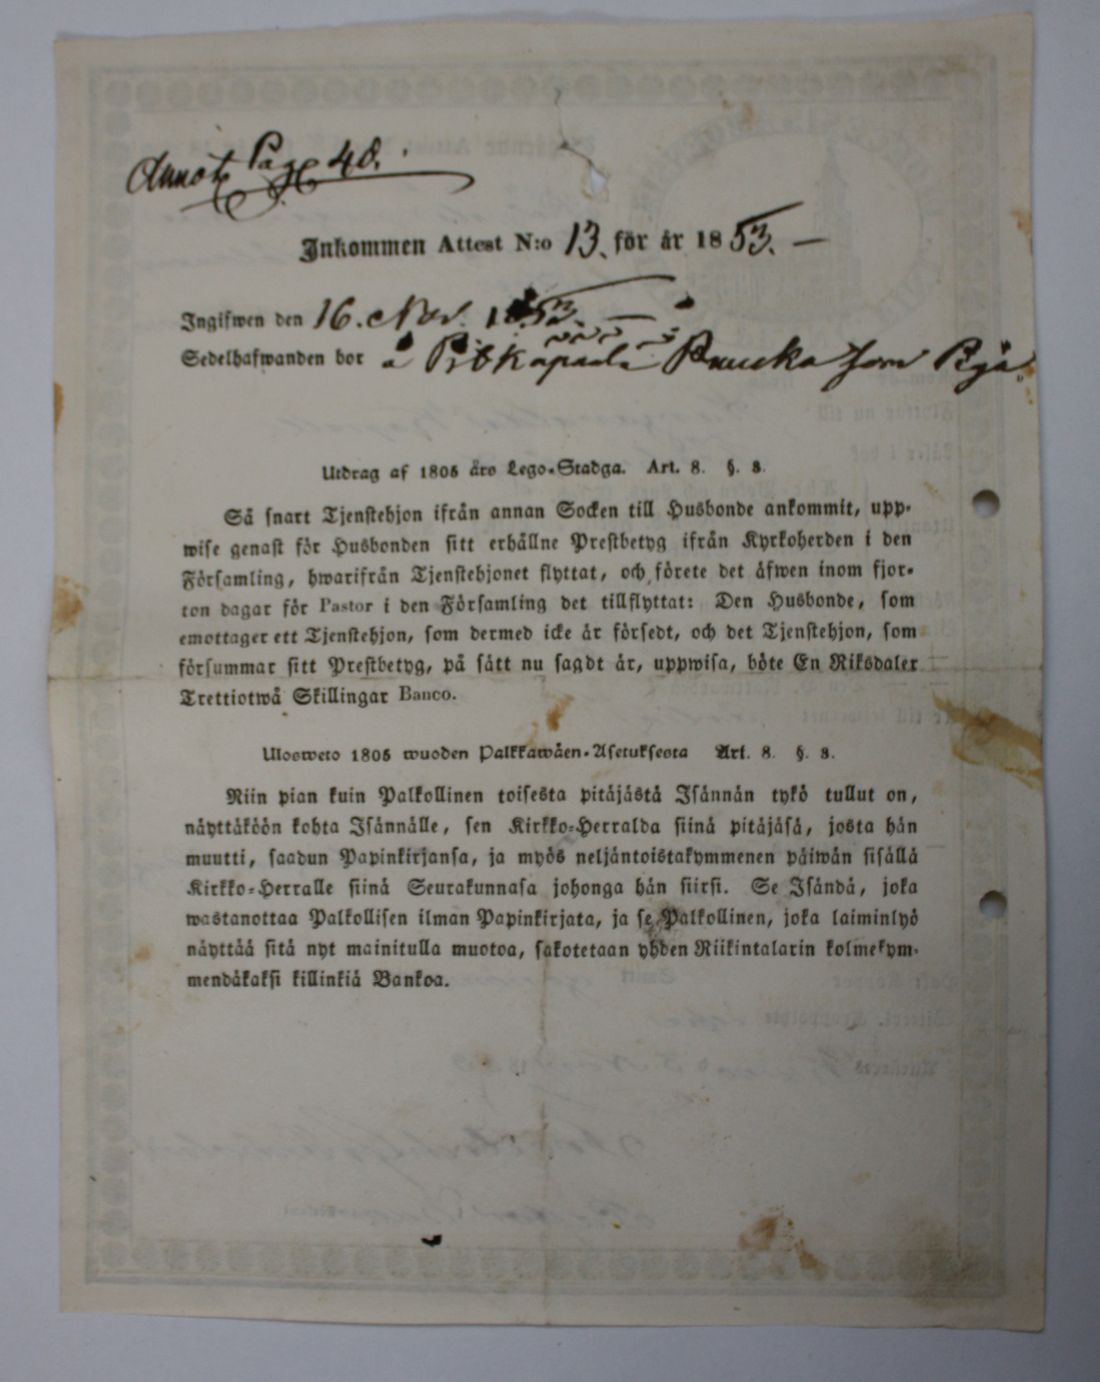 Annot. Pag. 48.
Inkommen Attest N:o 13. för år 1853. —
Ingifwen den 16. Nov. 1853. —
Sedelhafwanden bor å
Utdrag af 1805 års Lego-Stadga. Art. 8. §. 8.
Så snart Tjenstehjon ifrån annan Socken till Husbonde ankommit, upp-
wise genast för Husbonden sitt erhållne Prestbetyg ifrån Kyrkoherden i den
Församling, hwarifrån Tjenstehjonet flyttat, och förete det äfwen inom fjor-
ton dagar för Pastor i den Församling det tillflyttat: Den Husbonde, som
emottager ett Tjenstehjon, som dermed icke är försedt, och det Tjenstehjon, som
försummar sitt Prestbetyg, på sätt nu sagdt är, uppwisa, böte En Riksdaler
Trettiotwå Skillingar Banco.
Ulosweto 1805 wuoden Palkkawäen-Asetuksesta Art. 8. §. 8.
Niin pian kuin Palkollinen toisesta pitäjästä Isännän tykö tullut on,
näyttäköön kohta Isännälle, sen Kirkko-Herralda siinä pitäjäsä, josta hän
muutti, saadun Papinkirjansa, ja myös neljäntoistakymmenen päiwän sisällä
Kirkko-Herralle siinä Seurakunnasa johonga hän siirsi. Se Isändä, joka
wastanottaa Palkollisen ilman Papinkirjata, ja se Palkollinen, joka laiminlyö
näyttää sitä nyt mainitulla muotoa, sakotetaan yhden Riikintalarin kolmekym-
mendäkaksi killinkiä Bankoa.